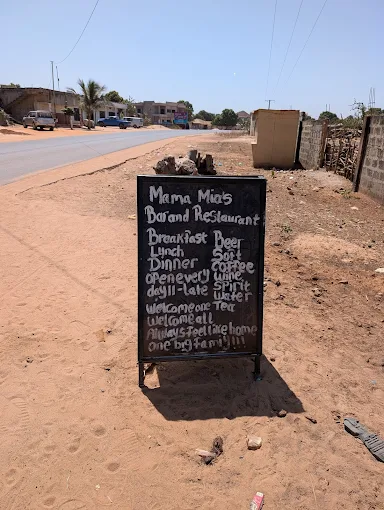 Mama Mia's
Bar and Restaurant
Breakfast Beer
Lunch Soft
Dinner Coffee
open every wine
day 11-late spirit
water
welcome one Tea
welcome all
Always feel like home
one big family!!!